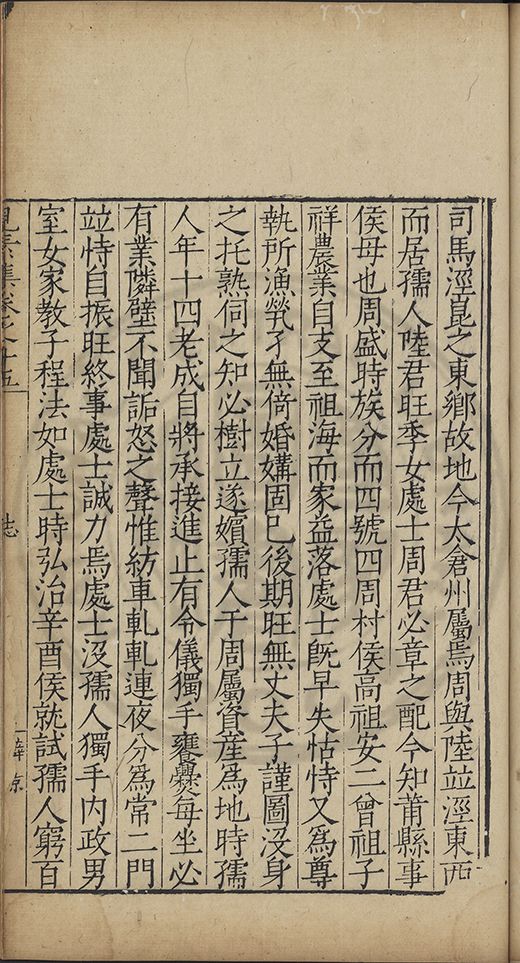 司馬涇崑之東鄉故地今太倉州屬焉周與陸並涇東西
而居孺人陸君旺季女處士周君必章之配今知莆縣事
侯母也周盛時族分而四號四周村侯高祖安二曾祖子
祥農業自支至祖海而家益落處士旣早失怙恃又為尊
執所漁煢孑無倚婚媾固已後期旺無丈夫子謹圖沒身
之托熟伺之知必樹立遂嬪孺人于周屬資産為地時孺
人年十四老成自將承接進止有令儀獨手饔爨每坐必
有業隣壁不聞詬怒之聲惟紡車軋軋連夜分為常二門
竝恃自振旺終事處士誠力焉處士沒孺人獨手內政男
室女家教子程法如處士時弘治辛酉侯就試孺人窮百
見素集卷之十五
志